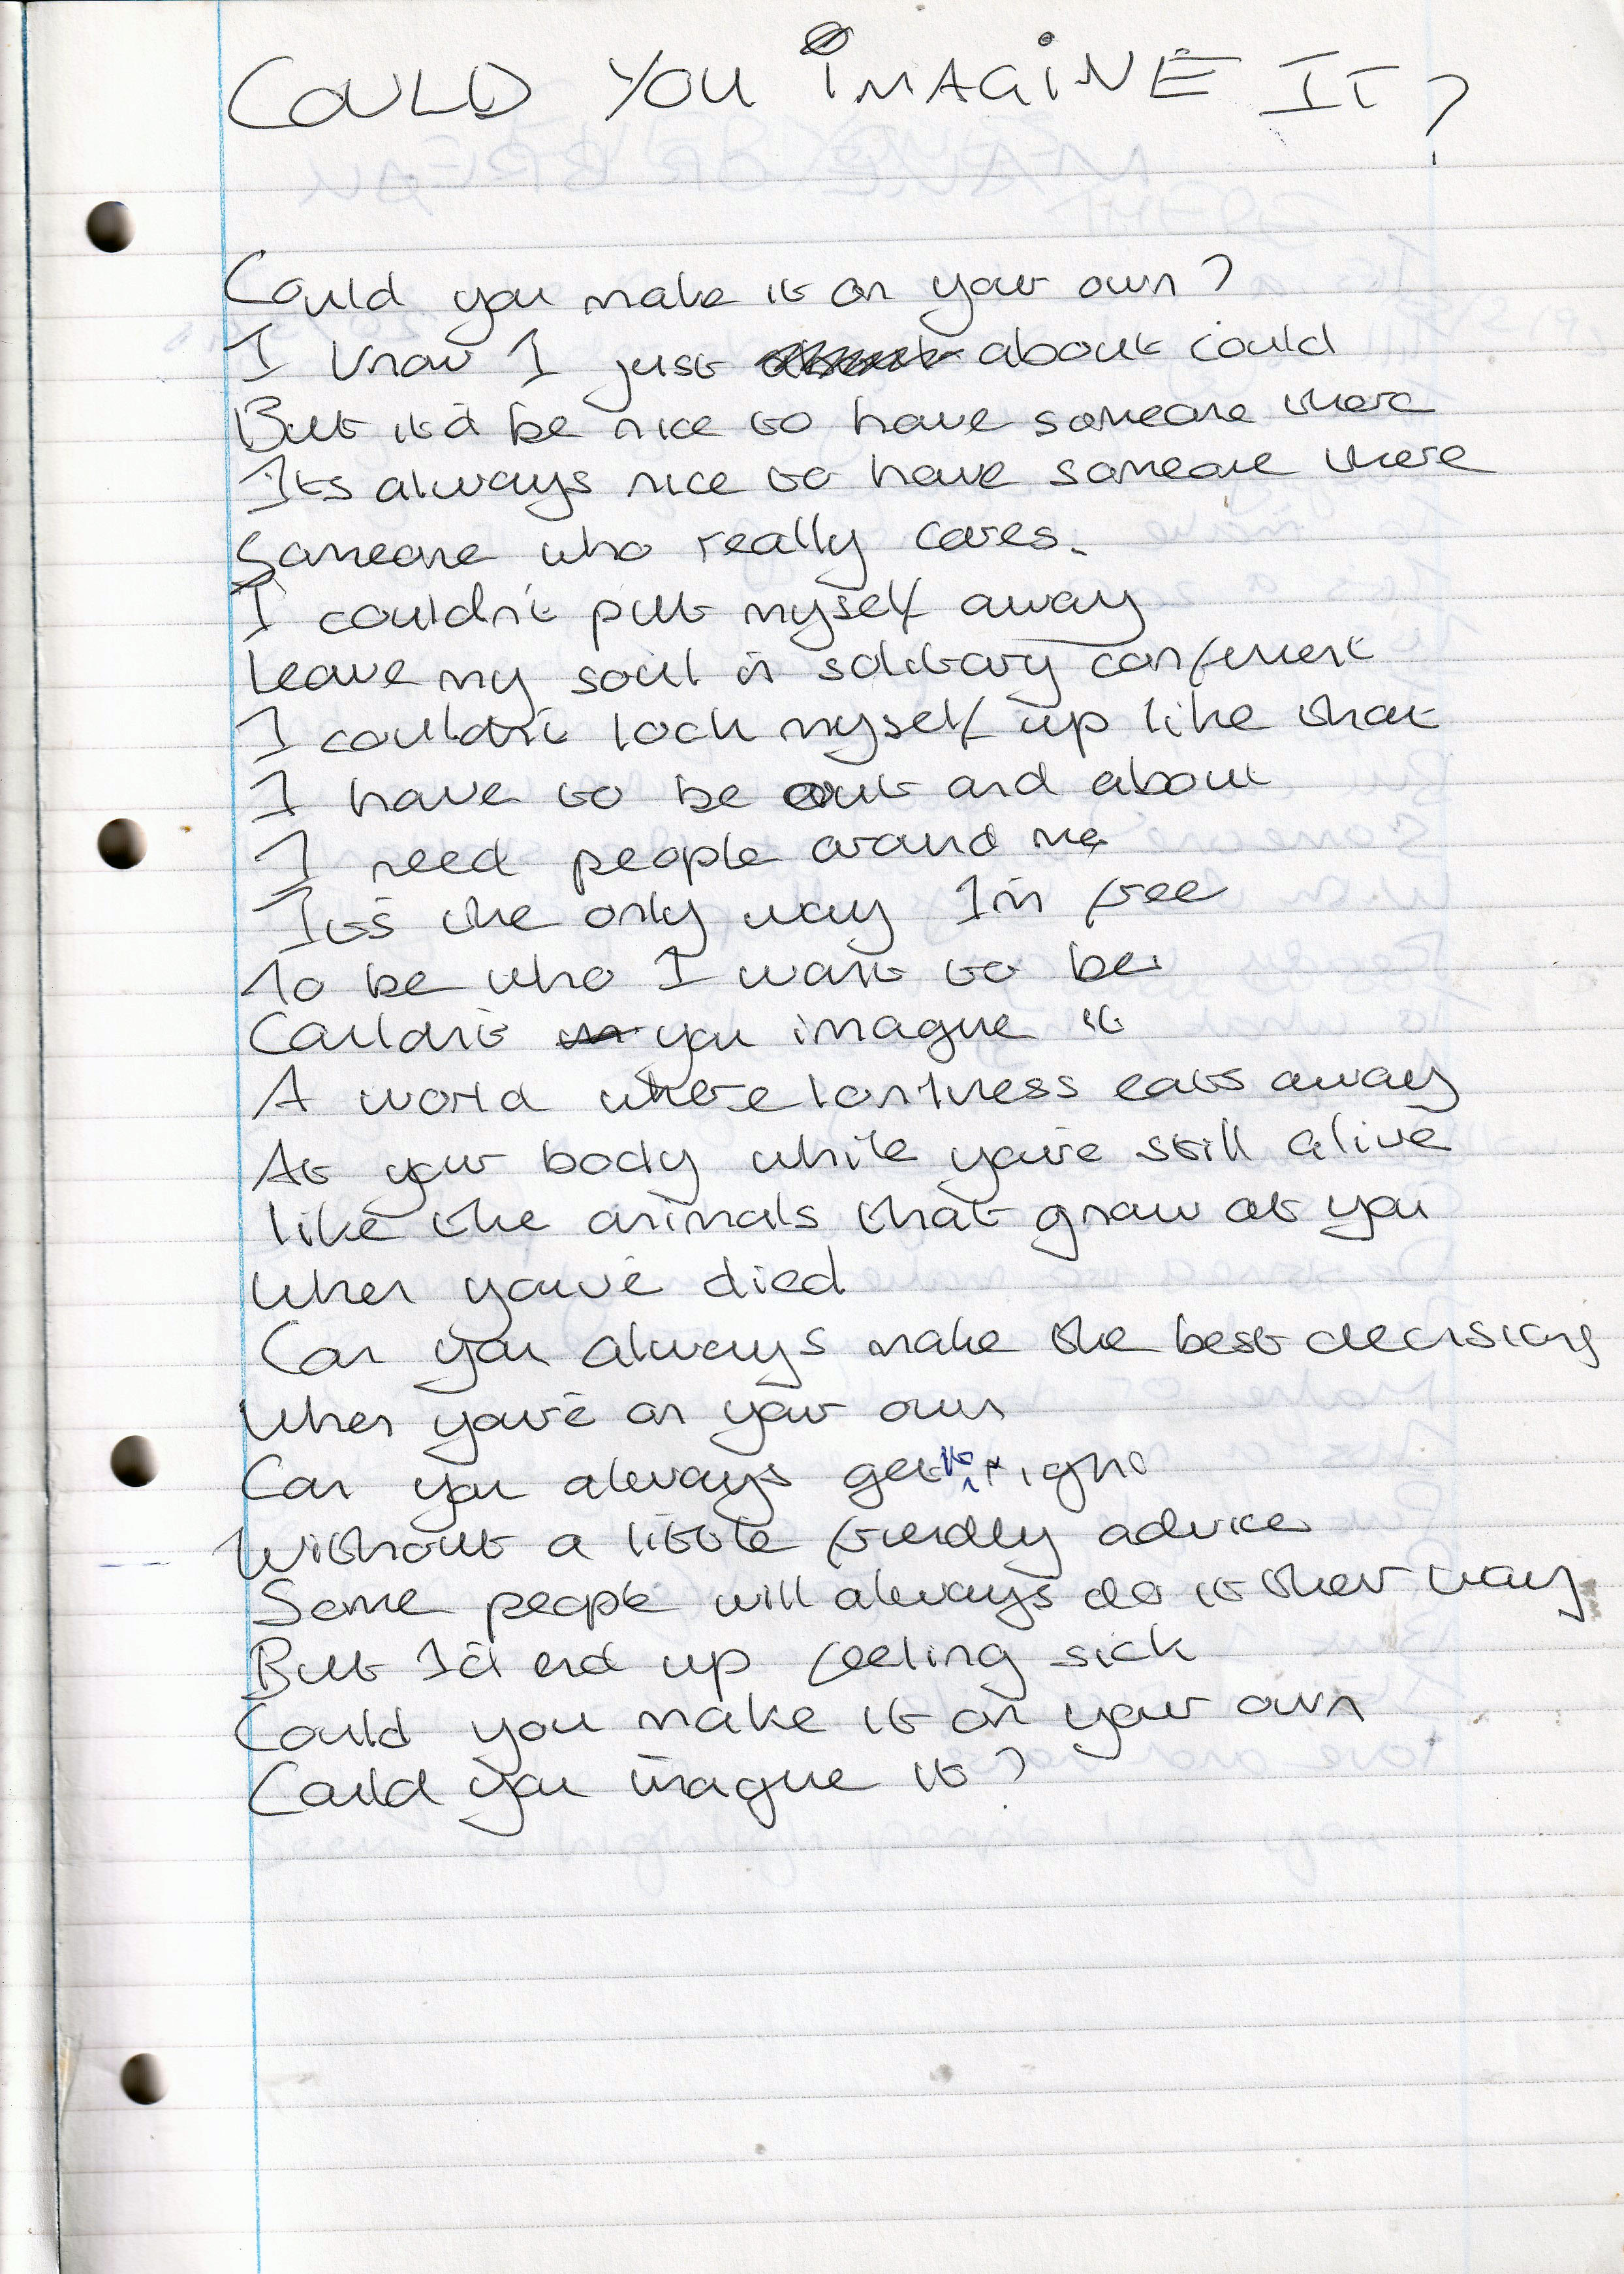 COULD YOU IMAGINE IT?
Could you make it on your own?
I know I just about could
But it'd be nice to have someone there
Its always nice to have someone there
Someone who really cares.
I couldn't put myself away
Leave my soul in solitary confinent
I couldn't lock myself up like that
I have to be out and about
I need people around me
It's the only way I'm free
To be who I want to be
Couldn't you imagine it
A world where lonlness eats away
At your body while you're still alive
like the animals that gnaw at you
When you've died
Can you always make the best decisions
When you're on your own
Can you always get it right
Without a little friendly advice
Some people will always do it their way
But I'd end up feeling sick
Could you make it on your own
Could you imagine it?